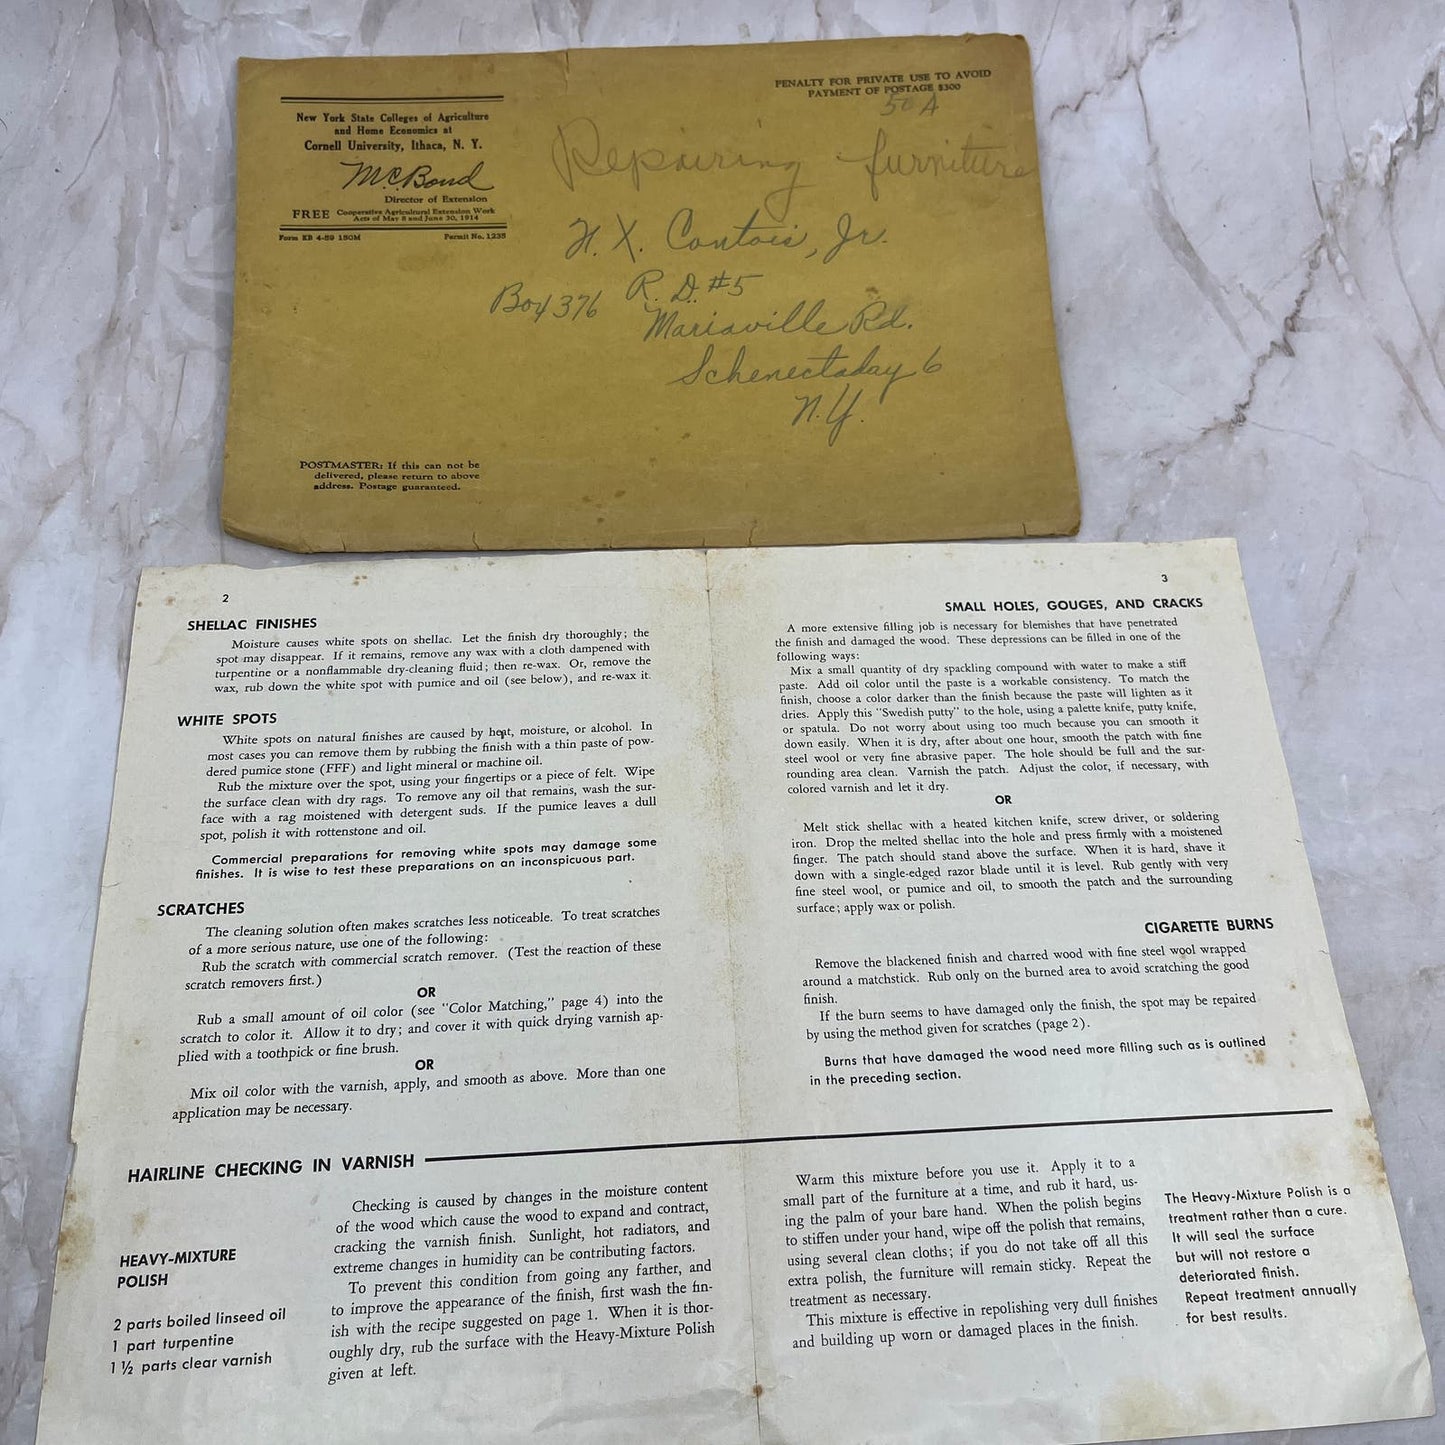 New York State Colleges of Agriculture
and Home Economics at
Cornell University, Ithaca, N. Y.
M.C. Bond
Director of Extension
FREE Cooperative Agricultural Extension Work
Acts of May 8 and June 30, 1914
Form EB 4-59 150M Permit No. 1235
PENALTY FOR PRIVATE USE TO AVOID
PAYMENT OF POSTAGE $300
50 A
Repairing furniture
H. X. Contois, Jr.
Box 376 R. D. #5
Mariaville Rd.
Schenectaday 6
N.Y.
POSTMASTER: If this can not be
delivered, please return to above
address. Postage guaranteed.
2
SHELLAC FINISHES
Moisture causes white spots on shellac. Let the finish dry thoroughly; the
spot may disappear. If it remains, remove any wax with a cloth dampened with
turpentine or a nonflammable dry-cleaning fluid; then re-wax. Or, remove the
wax, rub down the white spot with pumice and oil (see below), and re-wax it.
WHITE SPOTS
White spots on natural finishes are caused by heat, moisture, or alcohol. In
most cases you can remove them by rubbing the finish with a thin paste of pow-
dered pumice stone (FFF) and light mineral or machine oil.
Rub the mixture over the spot, using your fingertips or a piece of felt. Wipe
the surface clean with dry rags. To remove any oil that remains, wash the sur-
face with a rag moistened with detergent suds. If the pumice leaves a dull
spot, polish it with rottenstone and oil.
Commercial preparations for removing white spots may damage some
finishes. It is wise to test these preparations on an inconspicuous part.
SCRATCHES
The cleaning solution often makes scratches less noticeable. To treat scratches
of a more serious nature, use one of the following:
Rub the scratch with commercial scratch remover. (Test the reaction of these
scratch removers first.)
OR
Rub a small amount of oil color (see "Color Matching," page 4) into the
scratch to color it. Allow it to dry; and cover it with quick drying varnish ap-
plied with a toothpick or fine brush.
OR
Mix oil color with the varnish, apply, and smooth as above. More than one
application may be necessary.
3
SMALL HOLES, GOUGES, AND CRACKS
A more extensive filling job is necessary for blemishes that have penetrated
the finish and damaged the wood. These depressions can be filled in one of the
following ways:
Mix a small quantity of dry spackling compound with water to make a stiff
paste. Add oil color until the paste is a workable consistency. To match the
finish, choose a color darker than the finish because the paste will lighten as it
dries. Apply this "Swedish putty" to the hole, using a palette knife, putty knife,
or spatula. Do not worry about using too much because you can smooth it
down easily. When it is dry, after about one hour, smooth the patch with fine
steel wool or very fine abrasive paper. The hole should be full and the sur-
rounding area clean. Varnish the patch. Adjust the color, if necessary, with
colored varnish and let it dry.
OR
Melt stick shellac with a heated kitchen knife, screw driver, or soldering
iron. Drop the melted shellac into the hole and press firmly with a moistened
finger. The patch should stand above the surface. When it is hard, shave it
down with a single-edged razor blade until it is level. Rub gently with very
fine steel wool, or pumice and oil, to smooth the patch and the surrounding
surface; apply wax or polish.
CIGARETTE BURNS
Remove the blackened finish and charred wood with fine steel wool wrapped
around a matchstick. Rub only on the burned area to avoid scratching the good
finish.
If the burn seems to have damaged only the finish, the spot may be repaired
by using the method given for scratches (page 2).
Burns that have damaged the wood need more filling such as is outlined
in the preceding section.
HAIRLINE CHECKING IN VARNISH
HEAVY-MIXTURE
POLISH
2 parts boiled linseed oil
1 part turpentine
1 ½ parts clear varnish
Checking is caused by changes in the moisture content
of the wood which cause the wood to expand and contract,
cracking the varnish finish. Sunlight, hot radiators, and
extreme changes in humidity can be contributing factors.
To prevent this condition from going any farther, and
to improve the appearance of the finish, first wash the fin-
ish with the recipe suggested on page 1. When it is thor-
oughly dry, rub the surface with the Heavy-Mixture Polish
given at left.
Warm this mixture before you use it. Apply it to a
small part of the furniture at a time, and rub it hard, us-
ing the palm of your bare hand. When the polish begins
to stiffen under your hand, wipe off the polish that remains,
using several clean cloths; if you do not take off all this
extra polish, the furniture will remain sticky. Repeat the
treatment as necessary.
This mixture is effective in repolishing very dull finishes
and building up worn or damaged places in the finish.
The Heavy-Mixture Polish is a
treatment rather than a cure.
It will seal the surface
but will not restore a
deteriorated finish.
Repeat treatment annually
for best results.